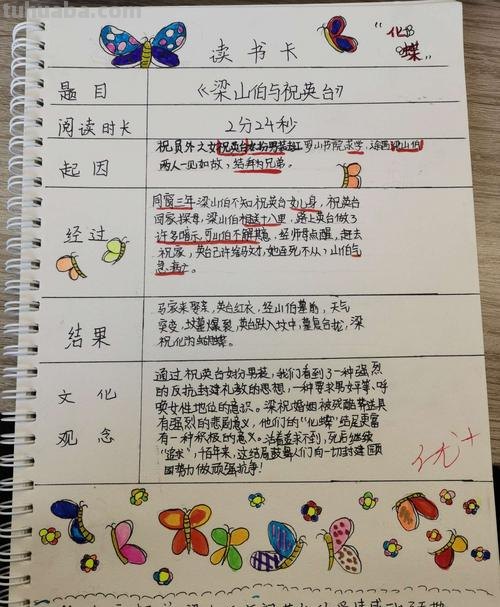 tuhuaba.com
读书卡
"化蝶"
题目
《梁山伯与祝英台》
阅读时长
2分24秒
起因
祝员外之女祝英台女扮男装赴罗山书院求学,途遇梁山伯
两人一见如故,结拜为兄弟。
经过
同窗三年梁山伯不知祝英台女儿身,祝英台
回家探母,梁山伯相送十八里,路上英台做了
许多暗示,可山伯不解其意,经师母点醒,赶去
祝家,英台已许给马文才,她宁死不从,山伯
急病亡
结果
马家来娶亲,英台红衣,经山伯墓前,天气
突变,坟墓爆裂,英台跃入坟中,墓复合拢,梁
祝化为蝴蝶。
文化
观念
通过祝英台女扮男装,我们看到了一种强烈
的反抗封建礼教的思想,一种要求男女平等、呼
唤女性地位的意识。梁祝婚姻被残酷葬送具
有强烈的悲剧意义,他们的"化蝶"结尾更富
有一种积极的意义。活着追求不到,死后继续
"追求",千百年来,这结局鼓舞人们向一切封建顽
固势力做顽强抗争!
优+